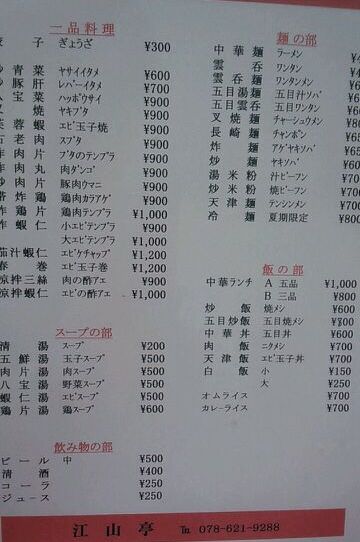 一品料理
子 ぎょうざ ¥300
青菜 ヤサイイタメ ¥600
豚肝 レバーイタメ ¥700
宝菜 ハッポウサイ ¥900
焼 ヤキブタ ¥900
蓉蝦 エビ玉子焼 ¥900
老肉 スブタ ¥900
肉片 ブタのテンプラ ¥900
肉丸 肉ダンゴ ¥900
肉片 豚肉ウマニ ¥900
炸鶏 鶏肉カラアゲ ¥900
鶏片 鶏肉テンプラ ¥1,000
蝦仁 小エビテンプラ ¥900
大エビテンプラ ¥1,200
茄汁蝦仁 エビケチャップ ¥1,200
春巻 エビ玉子巻 ¥1,200
涼拌三絲 肉の酢アエ ¥1,000
涼拌蝦仁 エビの酢アエ ¥1,000
スープの部
清湯 スープ ¥200
五鮮湯 玉子スープ ¥500
肉片湯 肉スープ ¥500
八宝湯 野菜スープ ¥500
蝦仁湯 エビスープ ¥600
鶏片湯 鶏スープ ¥600
飲み物の部
ビール 中 ¥500
清酒 ¥400
コーラ ¥250
ジュース ¥250
麺の部
中華麺 ラーメン
雲呑 ワンタン
雲呑麺 ワンタンメン
五目湯麺 五目汁ソバ
五目雲呑 五目ワンタン
叉焼麺 チャーシュウメン
長崎麺 チャンポン
炸麺 アゲヤキソバ
炒麺 ヤキソバ
湯米粉 汁ビーフン
炒米粉 焼ビーフン
天津麺 テンシンメン
冷麺 夏期限定 ¥800
飯の部
中華ランチ A 五品 ¥1,000
B 三品 ¥800
炒飯 焼メシ ¥600
五目炒飯 五目焼メシ ¥700
中華丼 五目丼 ¥600
肉飯 ニクメシ ¥700
天津飯 エビ玉子丼 ¥700
白飯 小 ¥150
大 ¥250
オムライス ¥700
カレーライス ¥700
江山亭 ℡ 078-621-9288